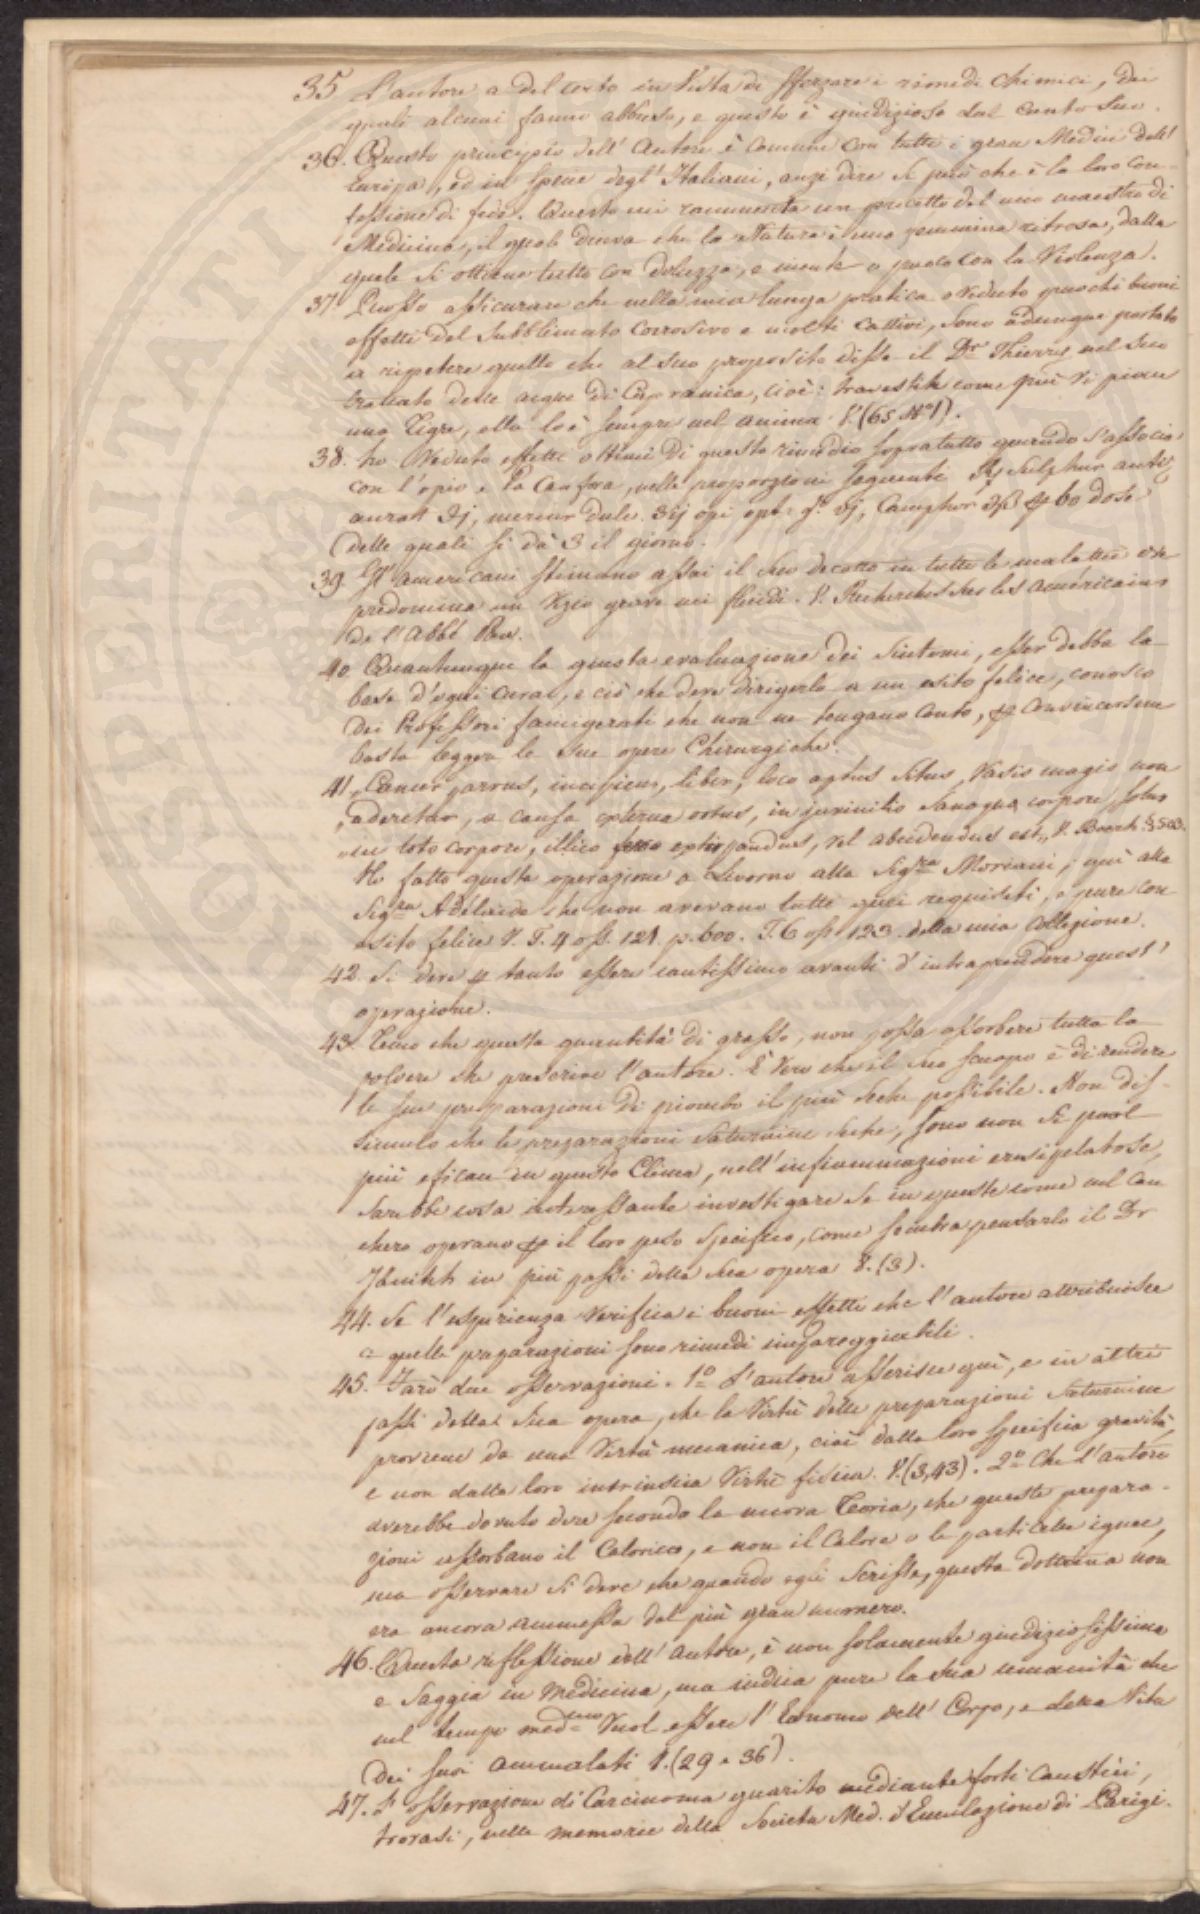 35 L'autore a del certo in vista di sforzare i rimedi chimici, dei
quali alcuni fanno abbuso, e questo è giudizioso dal canto suo.
36. Questo principio dell' Autore è comune con tutti i gran Medici dell'
Europa, ed in specie degl' Italiani, anzi dire si può che è la loro con-
fessione di fede. Questo mi rammenta un precetto del mio maestro di
Medicina, il quale diceva che la Natura è una femmina ritrosa, dalla
quale si ottiene tutto con dolcezza, e niente o poco con la Violenza.
37 Posso assicurare che nella mia lunga pratica o veduto puochi buoni
effetti del Subblimato Corrosivo e molti cattivi, sono adunque portato
a ripetere quello che al suo proposito disse il Dr Thierry nel suo
trattato delle acque di Capranica, cioè: travestite come più vi piace
una Tigre, ella lo è sempre nel anima. V. (65 Nº 1).
38. ho Veduto effetti ottimi di questo rimedio sopratutto quando s'associa
con l'opio e la Canfora, nelle proporzioni seguenti Sulphur anti
aurat , mercur dulc. opi , Camphor 60 dose
delle quali si dà 3 il giorno.
39. Gl' americani stimano assai il suo decotto in tutte le malattie ove
predomina un Vizio grave nei fluidi. V. Recherches sur les américains
de l'Abbé Paw.
40 Quantunque la giusta evaluazione dei sintomi, esser debba la
base d'ogni cura, e ciò che deve dirigerla a un esito felice, conosco
dei Professori famigerati che non ne tengano conto, convincersene
basta leggere le sue opere Chirurgiche.
41 „Cancer parvus, incipiens, liber, loco aptus situs, Vasis magis non
„aderetur, a causa externa ortus, in juvinili sanoque corpore solus
„in toto corpore, illico ferro extirpandus, vel abscidendus est„ V. Boerh. § 503.
Ho fatto questa operazione a Livorno alla Sigra Morsani, quì alla
Sigra Adélaide che non avevano tutti quei requisiti, e pure con
esito felice V. T. 4 oss. 121. p. 600. T. 6 oss. 123. della mia collezione.
42. Si deve tanto essere cautissimo avanti d'intraprendere quest'
operazione.
43. Temo che questa quantità di grasso, non possa assorbere tutta la
polvere che prescrive l'autore. È vero che il suo scuopo è di rendere
le sue preparazioni di piombo il più secche possibile. Non dis-
simulo che le preparazioni Saturnine secche, sono non si puol
più eficaci in questo Clima, nell' infiammazioni erisipelatose,
sarebbe cosa interessante investigare se in queste come nel can
chero operano il loro peso specifico, come sembra pensarlo il Dr
in più passi della sua opera V. (3).
44. Se l'esperienza Verifica i buoni effetti che l'autore attribuisce
a quelle preparazioni sono rimedi impareggiabili.
45. Farò due osservazioni. 1º L'autore asserisce quì, e in altri
passi della sua opera, che la Virtù delle preparazioni Saturnine
proviene da una Virtù mecanica, cioè dalla loro specifica gravità,
e non dalla loro intrinsica Virtù fisica. V. (3, 43). 2º Che l'autore
averebbe dovuto dire secondo la nuova Teoria, che queste prepara-
zioni assorbano il Calorico, e non il Calore o le particelle ignee,
ma osservare si deve che quando egli scrisse, questa dottrina non
era ancora ammessa dal più gran numero.
46. Questa riflessione dell' Autore, è non solamente giudiziosissima
e saggia in Medicina, ma indica pure la sua umanità che
nel tempo medmo Vuol essere l'Economo dell' Corpo, e della Vita
dei suoi ammalati V. (29 e 36).
47. L'osservazione di Carcinoma guarito mediante forti Caustici,
trovasi, nelle memorie della Società Med. d'Emulazione di Parigi.